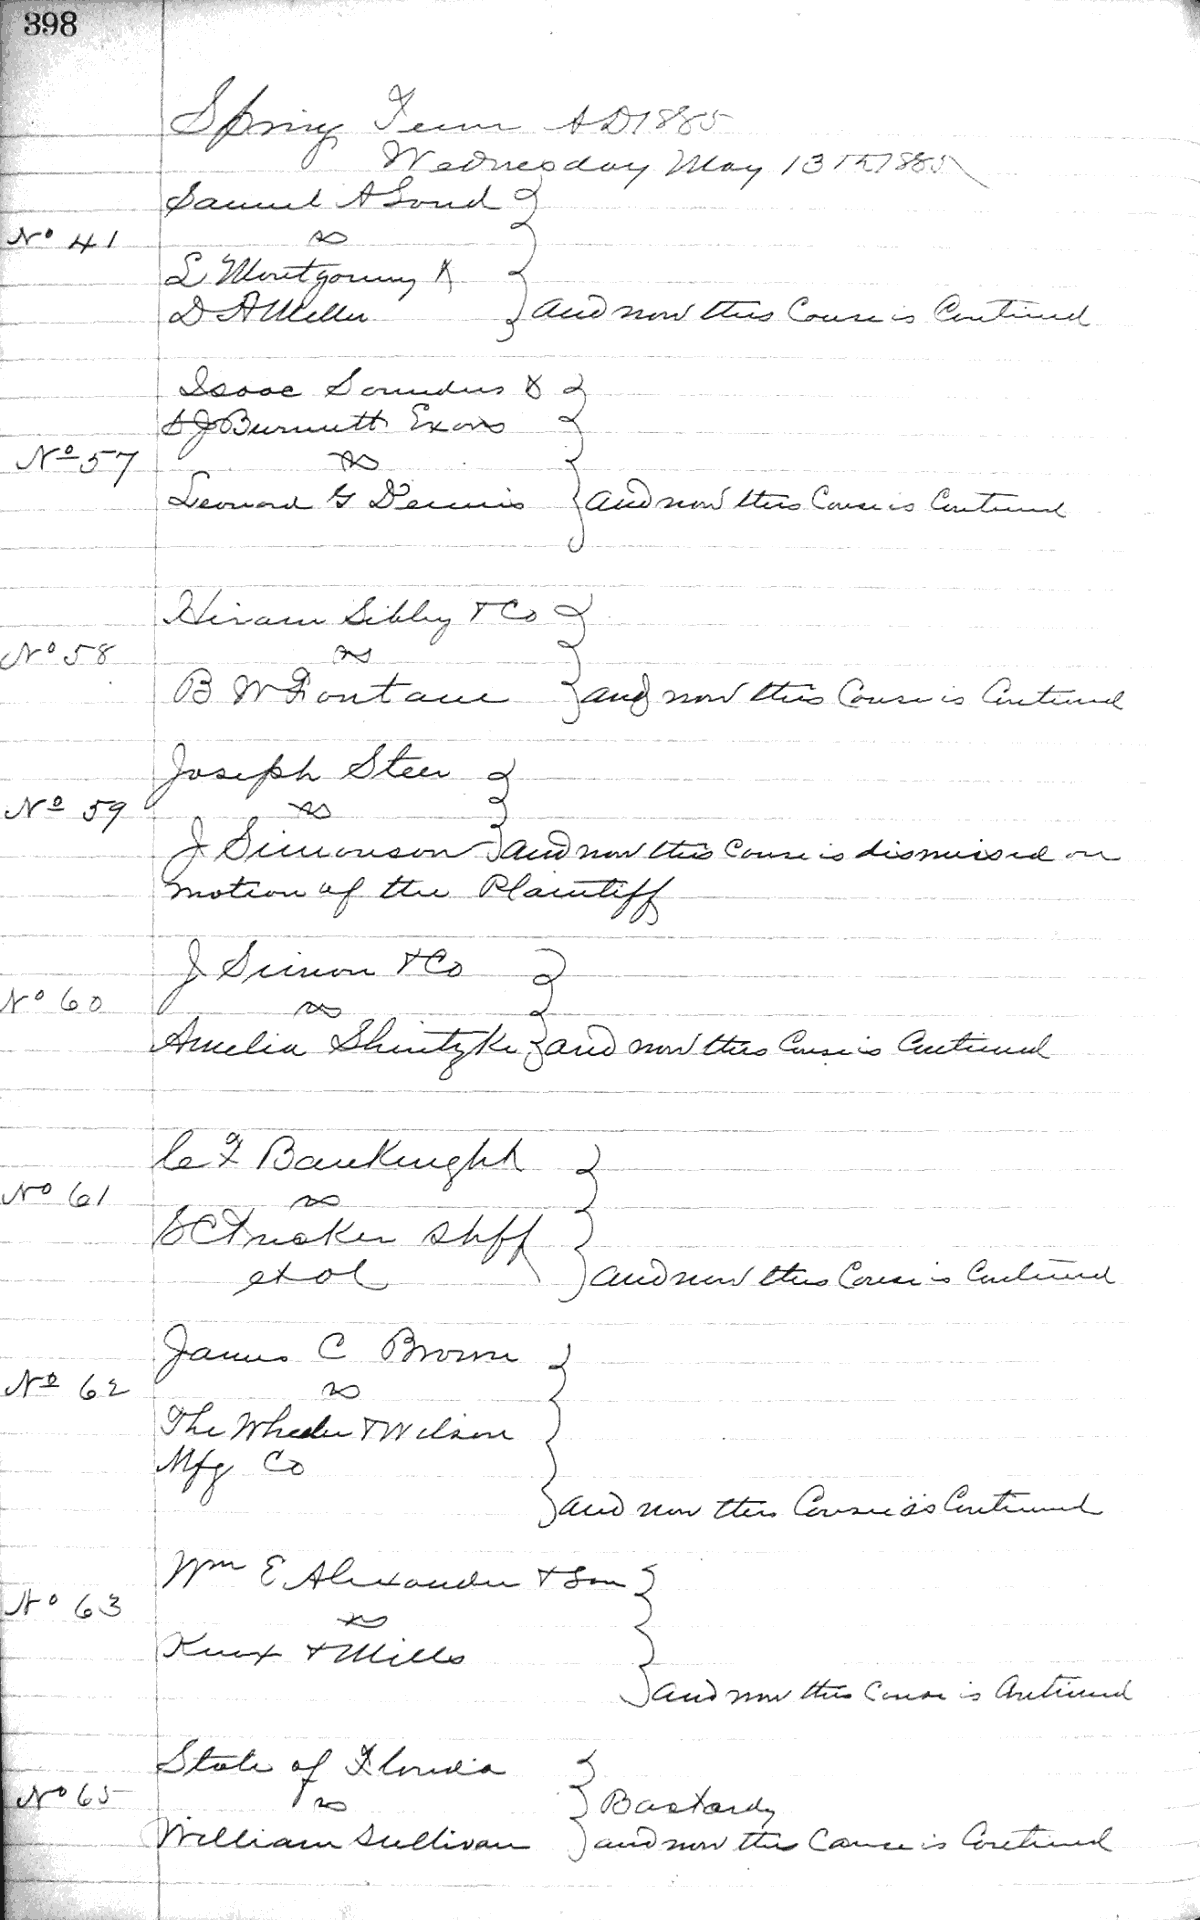 398
Spring Term AD 1885
Wednesday May 13th 1885
Samuel A
No 41
vs
L Montgomery &
D A Miller } and now this Cause is Continued
Isaac Saunders &
S J Burnett Exors
No 57
vs
Leonard G Dennis } and now this Cause is Continued
Hiram Sibley & Co
No 58
vs
B W Fontane } and now this Cause is Continued
Joseph Steer
No 59
vs
J Simonson } and now this Cause is dismissed on
motion of the Plaintiff
J Simon & Co
No 60
vs
Amelia } and now this Cause is Continued
C F Bauknight
No 61
vs
S C Tucker Shff
et al } and now this Cause is Continued
James C Brown
No 62
vs
The Wheeler & Wilson
Mfg Co
} and now this Cause is Continued
Wm E Alexander & Son
No 63
vs
Knox & Mills
} and now this Cause is Continued
State of Florida
No 65
vs } Bastardy
William Sullivan } and now this Cause is Continued